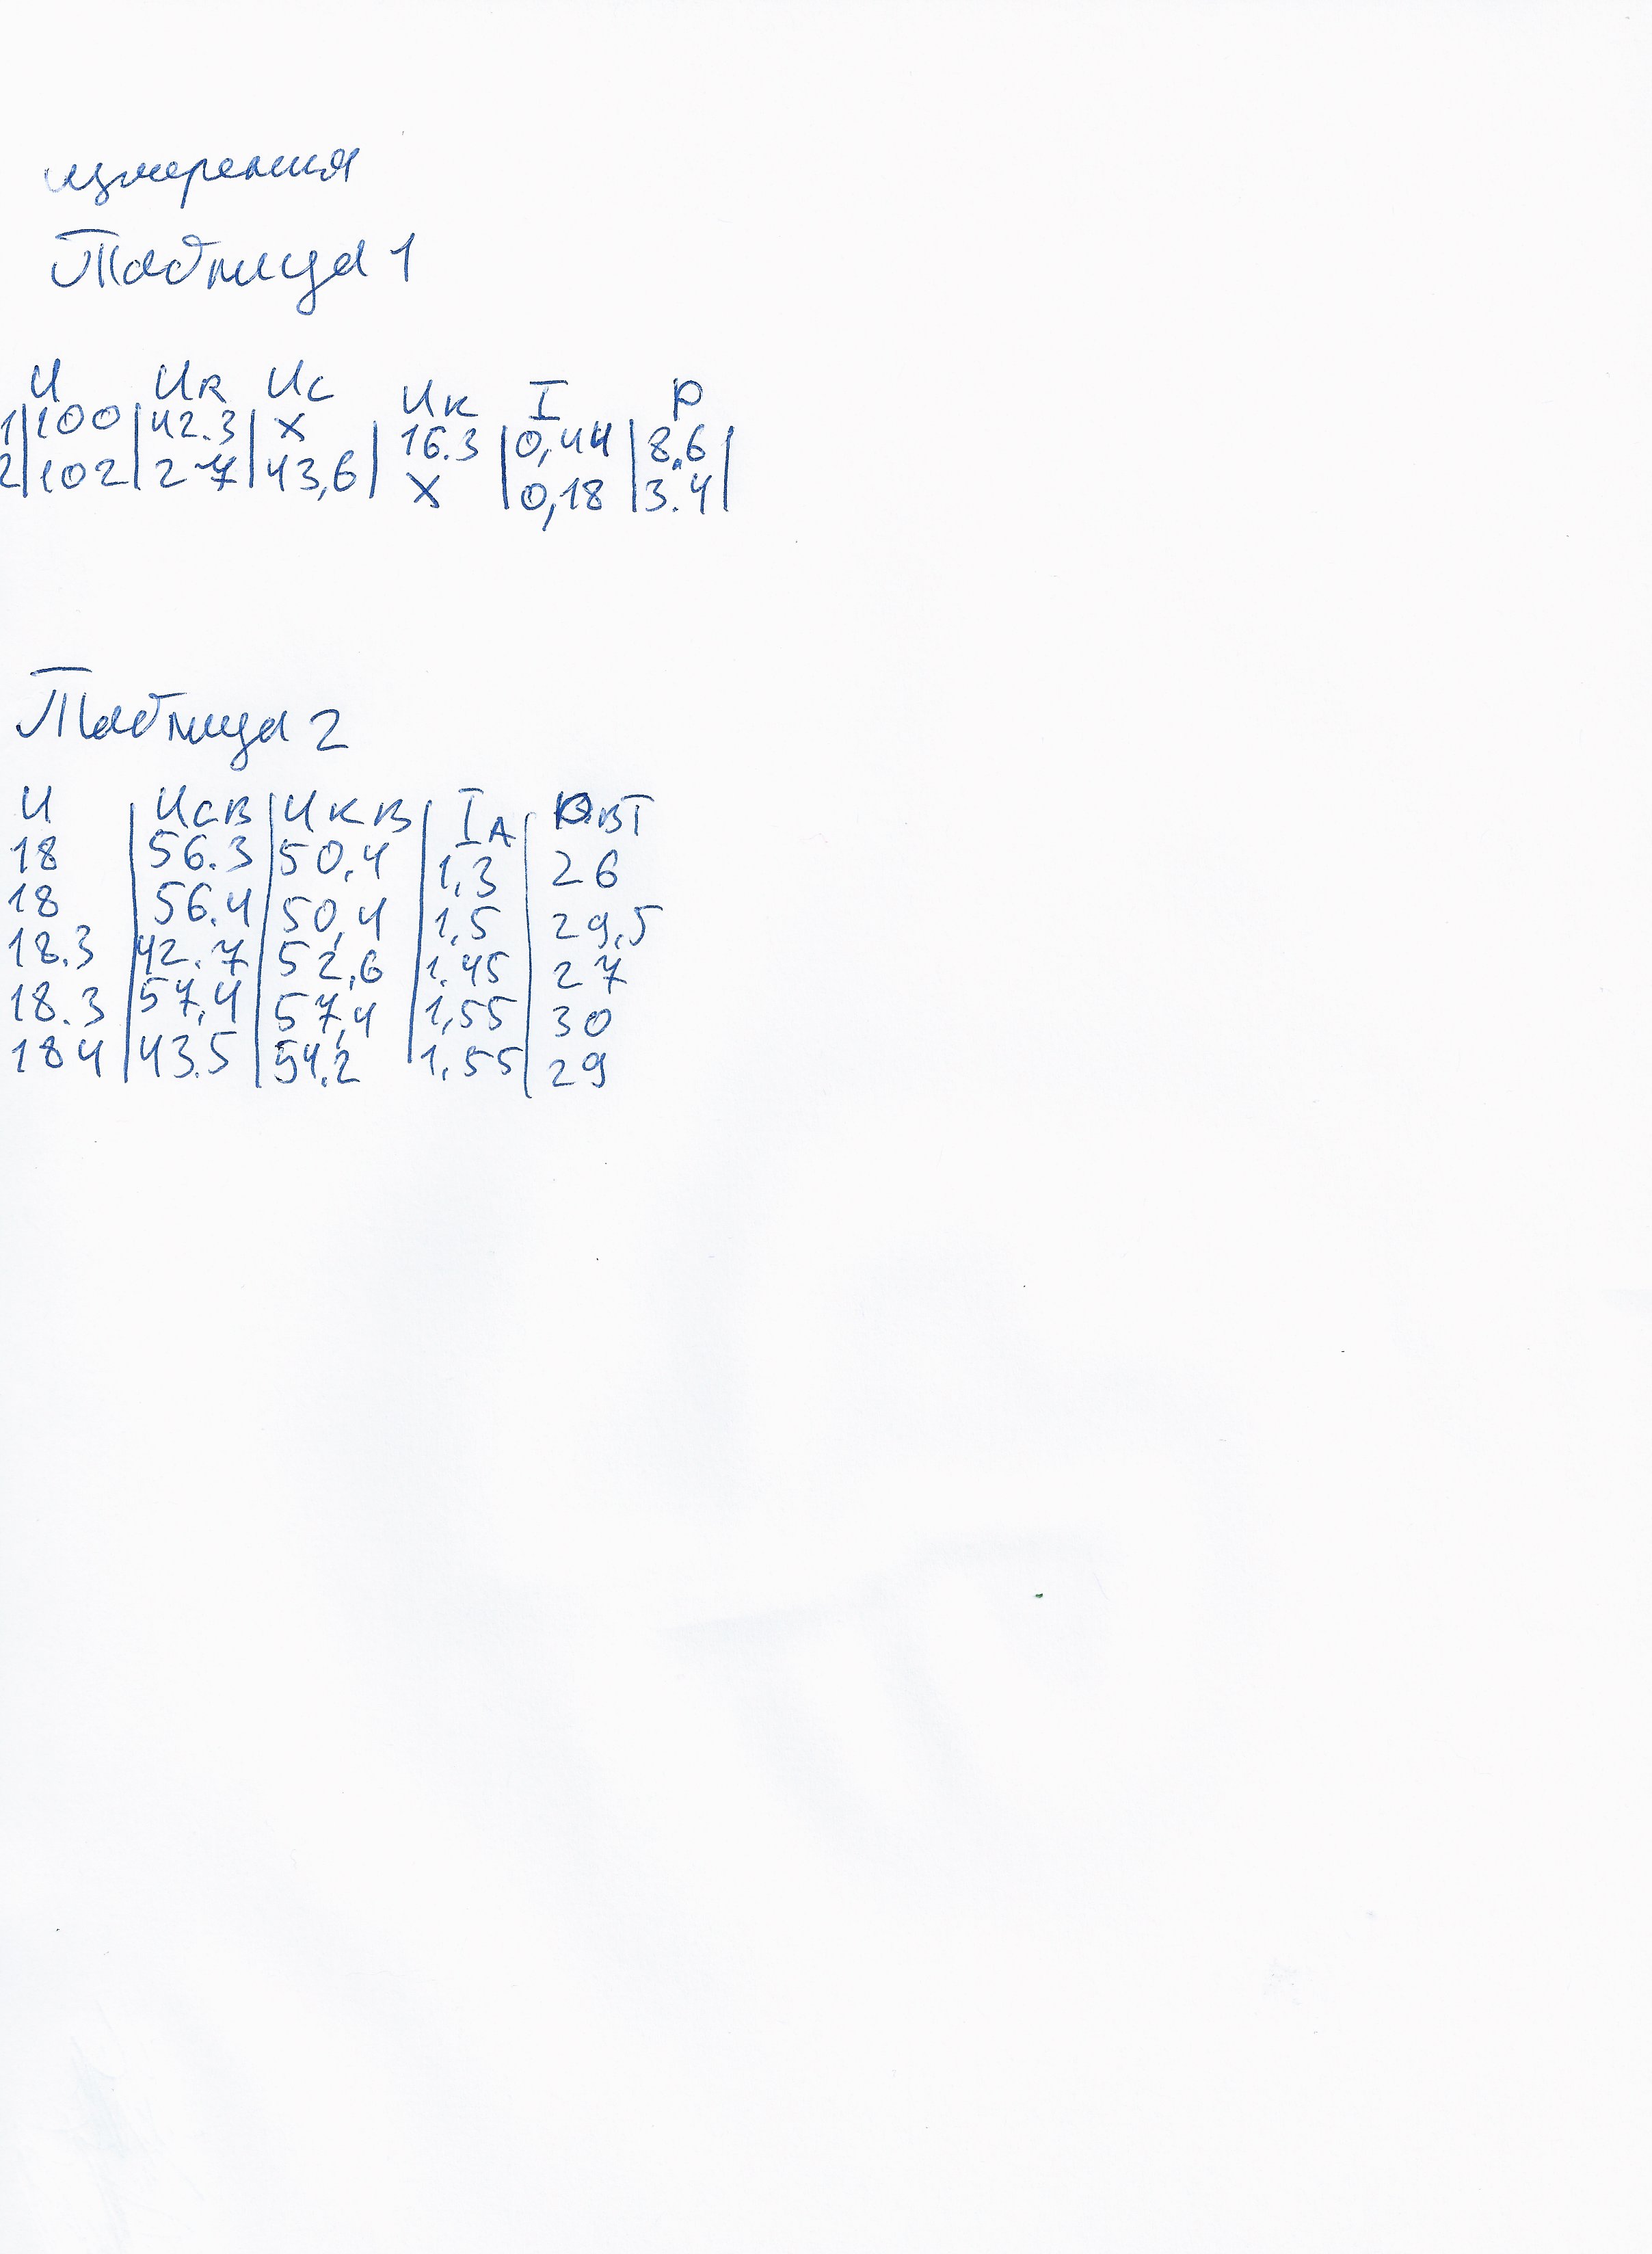 измерения
Таблица 1
U UR UC UK I P
1|100|42.3|X|16.3|0,44|8.6|
2|102|27|43,6|X|0,18|3.4|
Таблица 2
U |UCB|UKB|IA|P.BT
18|56.3|50,4|1,3|26
18|56.4|50,4|1,5|29,5
18.3|42.7|52,6|1.45|27
18.3|57,4|57,4|1,55|30
184|43.5|54.2|1,55|29